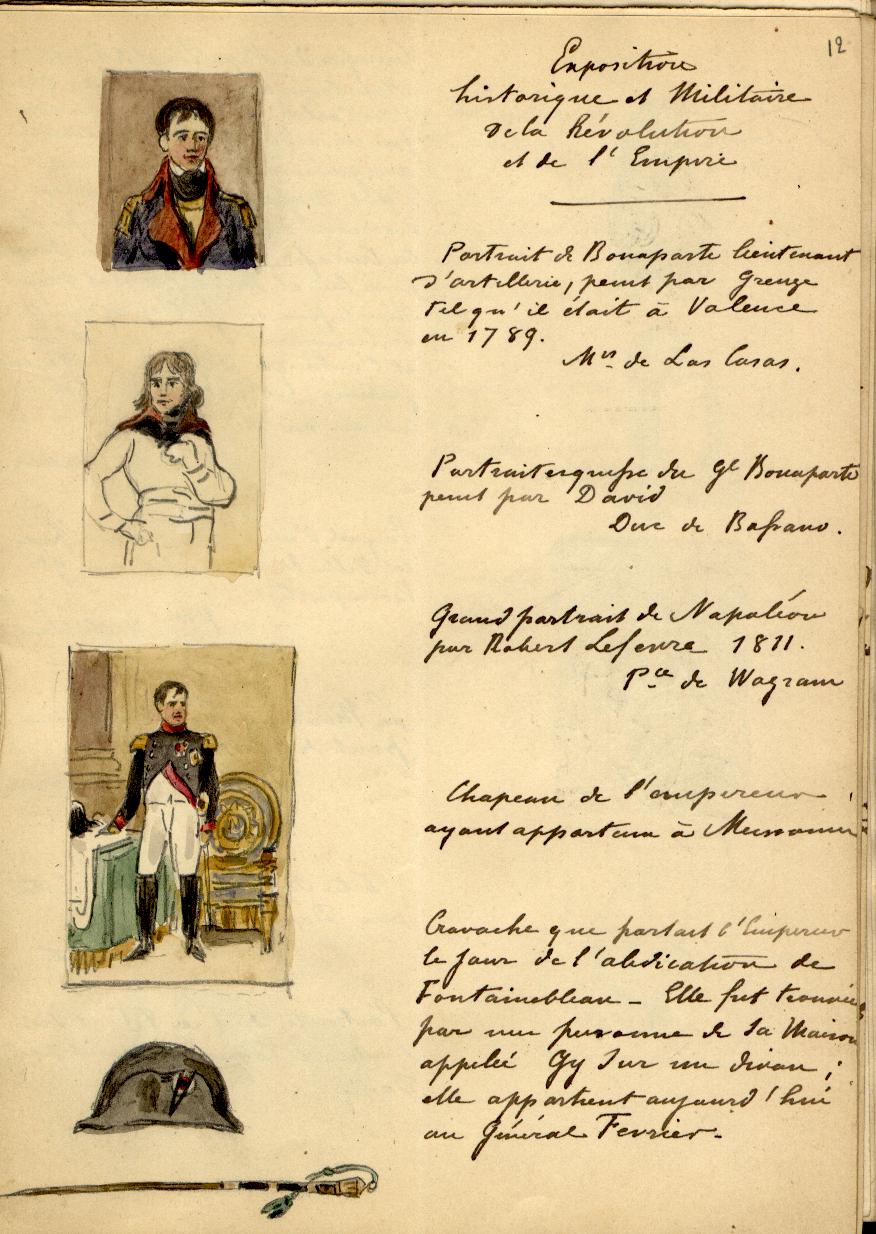 12
Exposition
historique et Militaire
de la Révolution
et de l'Empire
Portrait de Bonaparte lieutenant
d'artillerie, peint par Greuze
tel qu'il était à Valence
en 1789.
Mis de Las Casas.
Portrait esquisse du Gl Bonaparte
peint par David
Duc de Bassano.
Grand portrait de Napoléon
par Robert Lefevre 1811.
Pce de Wagram
Chapeau de l'empereur
ayant appartenu à Meissonier
Cravache que portait l'Empereur
le jour de l'abdication de
Fontainebleau – Elle fut trouvée
par une personne de sa Maison
appelée Gy sur un divan ;
elle appartient aujourd'hui
au Général Fevrier.